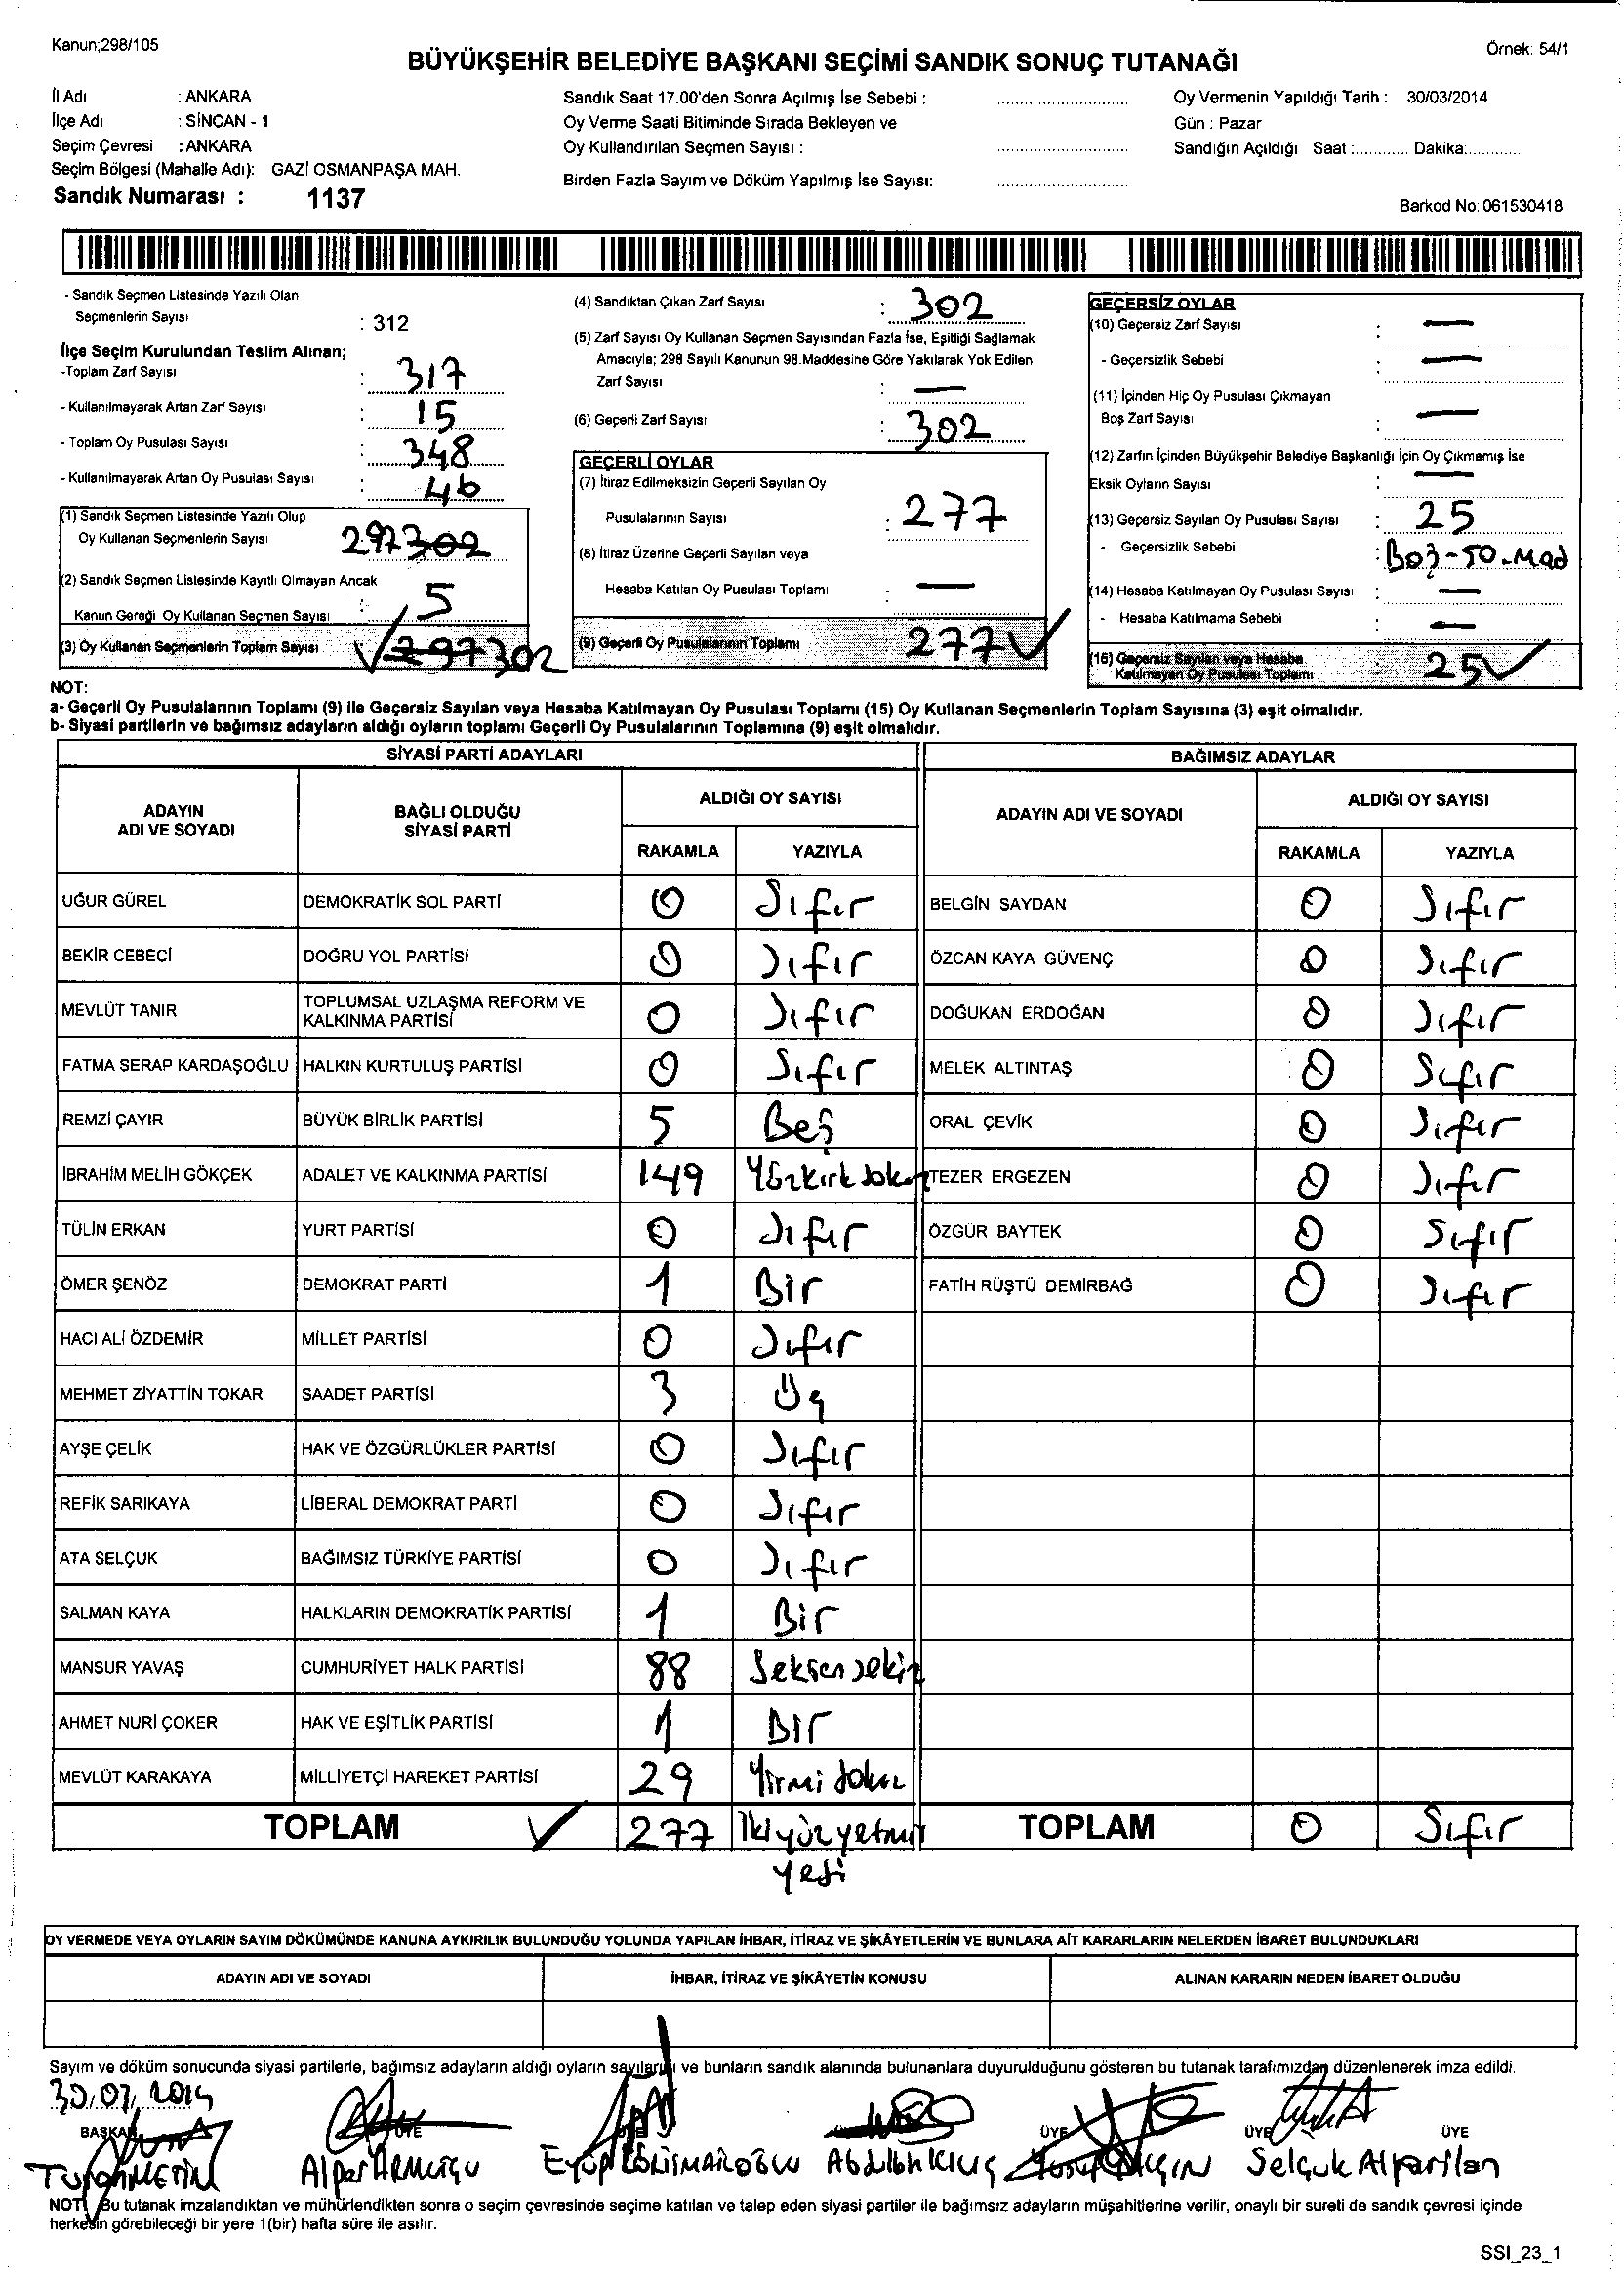 Kanun;298/105
Örnek: 54/1
BÜYÜKŞEHİR BELEDİYE BAŞKANI SEÇİMİ SANDIK SONUÇ TUTANAĞI
İl Adı : ANKARA
İlçe Adı : SİNCAN - 1
Seçim Çevresi : ANKARA
Seçim Bölgesi (Mahalle Adı): GAZİ OSMANPAŞA MAH.
Sandık Numarası : 1137
Sandık Saat 17.00'den Sonra Açılmış İse Sebebi :
Oy Verme Saati Bitiminde Sırada Bekleyen ve
Oy Kullandırılan Seçmen Sayısı :
Birden Fazla Sayım ve Döküm Yapılmış İse Sayısı:
Oy Vermenin Yapıldığı Tarih : 30/03/2014
Gün : Pazar
Sandığın Açıldığı Saat :............ Dakika:............
Barkod No: 061530418
- Sandık Seçmen Listesinde Yazılı Olan
Seçmenlerin Sayısı : 312
İlçe Seçim Kurulundan Teslim Alınan;
-Toplam Zarf Sayısı : 317
- Kullanılmayarak Artan Zarf Sayısı : 15
- Toplam Oy Pusulası Sayısı : 348
- Kullanılmayarak Artan Oy Pusulası Sayısı : 46
(1) Sandık Seçmen Listesinde Yazılı Olup
Oy Kullanan Seçmenlerin Sayısı 297 302
(2) Sandık Seçmen Listesinde Kayıtlı Olmayan Ancak
Kanun Gereği Oy Kullanan Seçmen Sayısı : 5
(3) Oy Kullanan Seçmenlerin Toplam Sayısı 297 302
(4) Sandıktan Çıkan Zarf Sayısı : 302
(5) Zarf Sayısı Oy Kullanan Seçmen Sayısından Fazla İse, Eşitliği Sağlamak
Amacıyla; 298 Sayılı Kanunun 98.Maddesine Göre Yakılarak Yok Edilen
Zarf Sayısı : —
(6) Geçerli Zarf Sayısı : 302
GEÇERLİ OYLAR
(7) İtiraz Edilmeksizin Geçerli Sayılan Oy
Pusulalarının Sayısı : 277
(8) İtiraz Üzerine Geçerli Sayılan veya
Hesaba Katılan Oy Pusulası Toplamı : —
(9) Geçerli Oy Pusulalarının Toplamı 277
GEÇERSİZ OYLAR
(10) Geçersiz Zarf Sayısı : —
- Geçersizlik Sebebi : —
(11) İçinden Hiç Oy Pusulası Çıkmayan
Boş Zarf Sayısı : —
(12) Zarfın İçinden Büyükşehir Belediye Başkanlığı İçin Oy Çıkmamış İse
Eksik Oyların Sayısı : —
(13) Geçersiz Sayılan Oy Pusulası Sayısı : 25
- Geçersizlik Sebebi : Boş-50.Mad
(14) Hesaba Katılmayan Oy Pusulası Sayısı : —
- Hesaba Katılmama Sebebi : —
(15) Geçersiz Sayılan veya Hesaba
Katılmayan Oy Pusulası Toplamı : 25
NOT:
a- Geçerli Oy Pusulalarının Toplamı (9) ile Geçersiz Sayılan veya Hesaba Katılmayan Oy Pusulası Toplamı (15) Oy Kullanan Seçmenlerin Toplam Sayısına (3) eşit olmalıdır.
b- Siyasi partilerin ve bağımsız adayların aldığı oyların toplamı Geçerli Oy Pusulalarının Toplamına (9) eşit olmalıdır.
SİYASİ PARTİ ADAYLARI BAĞIMSIZ ADAYLAR
ADAYIN ADI VE SOYADI BAĞLI OLDUĞU SİYASİ PARTİ ALDIĞI OY SAYISI ADAYIN ADI VE SOYADI ALDIĞI OY SAYISI
RAKAMLA YAZIYLA RAKAMLA YAZIYLA
UĞUR GÜREL DEMOKRATİK SOL PARTİ 0 Sıfır BELGİN SAYDAN 0 Sıfır
BEKİR CEBECİ DOĞRU YOL PARTİSİ 0 Sıfır ÖZCAN KAYA GÜVENÇ 0 Sıfır
MEVLÜT TANIR TOPLUMSAL UZLAŞMA REFORM VE KALKINMA PARTİSİ 0 Sıfır DOĞUKAN ERDOĞAN 0 Sıfır
FATMA SERAP KARDAŞOĞLU HALKIN KURTULUŞ PARTİSİ 0 Sıfır MELEK ALTINTAŞ 0 Sıfır
REMZİ ÇAYIR BÜYÜK BİRLİK PARTİSİ 5 Beş ORAL ÇEVİK 0 Sıfır
İBRAHİM MELİH GÖKÇEK ADALET VE KALKINMA PARTİSİ 149 Yüzkırk dokuz TEZER ERGEZEN 0 Sıfır
TÜLİN ERKAN YURT PARTİSİ 0 Sıfır ÖZGÜR BAYTEK 0 Sıfır
ÖMER ŞENÖZ DEMOKRAT PARTİ 1 Bir FATİH RÜŞTÜ DEMİRBAĞ 0 Sıfır
HACI ALİ ÖZDEMİR MİLLET PARTİSİ 0 Sıfır
MEHMET ZİYATTİN TOKAR SAADET PARTİSİ 3 Üç
AYŞE ÇELİK HAK VE ÖZGÜRLÜKLER PARTİSİ 0 Sıfır
REFİK SARIKAYA LİBERAL DEMOKRAT PARTİ 0 Sıfır
ATA SELÇUK BAĞIMSIZ TÜRKİYE PARTİSİ 0 Sıfır
SALMAN KAYA HALKLARIN DEMOKRATİK PARTİSİ 1 Bir
MANSUR YAVAŞ CUMHURİYET HALK PARTİSİ 88 Seksen sekiz
AHMET NURİ ÇOKER HAK VE EŞİTLİK PARTİSİ 1 Bir
MEVLÜT KARAKAYA MİLLİYETÇİ HAREKET PARTİSİ 29 Yirmi dokuz
TOPLAM 277 İkiyüzyetmiş TOPLAM 0 Sıfır
yedi
OY VERMEDE VEYA OYLARIN SAYIM DÖKÜMÜNDE KANUNA AYKIRILIK BULUNDUĞU YOLUNDA YAPILAN İHBAR, İTİRAZ VE ŞİKÂYETLERİN VE BUNLARA AİT KARARLARIN NELERDEN İBARET BULUNDUKLARI
ADAYIN ADI VE SOYADI İHBAR, İTİRAZ VE ŞİKÂYETİN KONUSU ALINAN KARARIN NEDEN İBARET OLDUĞU
Sayım ve döküm sonucunda siyasi partilerle, bağımsız adayların aldığı oyların sayılarını ve bunların sandık alanında bulunanlara duyurulduğunu gösteren bu tutanak tarafımızdan düzenlenerek imza edildi.
BAŞKAN ÜYE ÜYE ÜYE ÜYE
Turan METİN Alper Eyüp Abdullah KILIÇ Selçuk Alparslan
NOT: Bu tutanak imzalandıktan ve mühürlendikten sonra o seçim çevresinde seçime katılan ve talep eden siyasi partiler ile bağımsız adayların müşahitlerine verilir, onaylı bir sureti de sandık çevresi içinde
herkesin görebileceği bir yere 1(bir) hafta süre ile asılır.
SSI_23_1